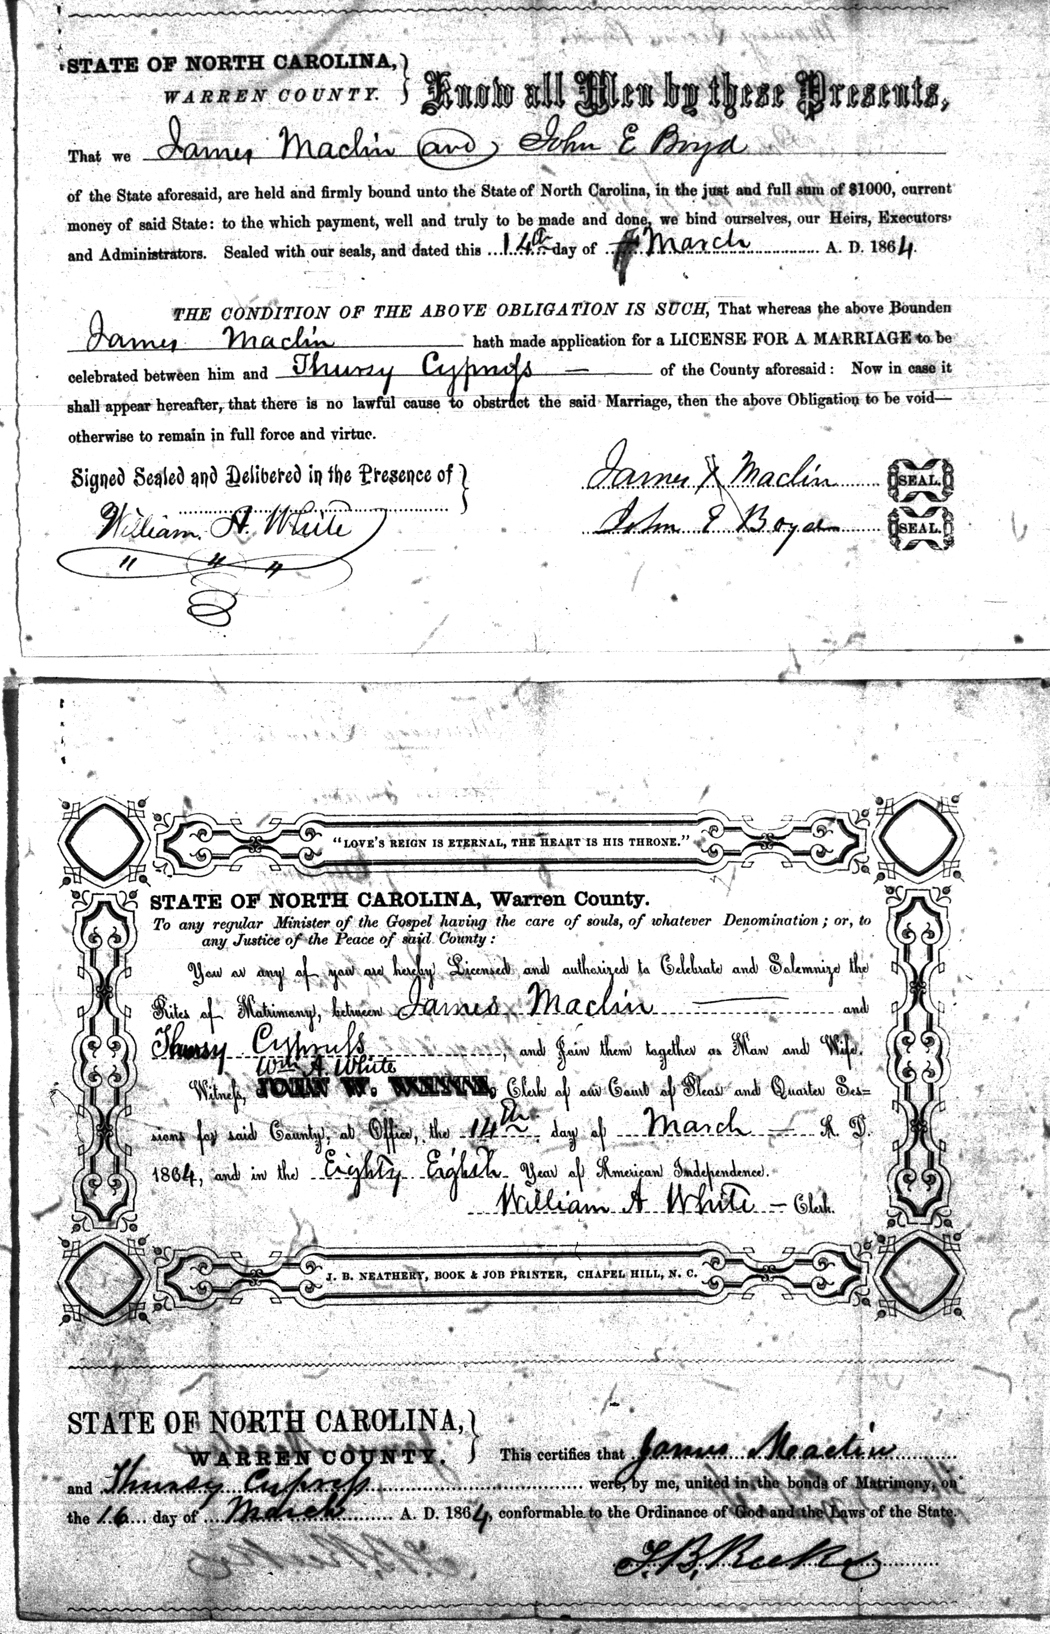 STATE OF NORTH CAROLINA,
WARREN COUNTY.
Know all Men by these Presents,
That we James Maclin and John E Boyd
of the State aforesaid, are held and firmly bound unto the State of North Carolina, in the just and full sum of $1000, current
money of said State: to the which payment, well and truly to be made and done, we bind ourselves, our Heirs, Executors
and Administrators. Sealed with our seals, and dated this 14th day of March A. D. 1864.
THE CONDITION OF THE ABOVE OBLIGATION IS SUCH, That whereas the above Bounden
James Maclin hath made application for a LICENSE FOR A MARRIAGE to be
celebrated between him and Thursy Cypress — of the County aforesaid: Now in case it
shall appear hereafter, that there is no lawful cause to obstruct the said Marriage, then the above Obligation to be void—
otherwise to remain in full force and virtue.
Signed Sealed and Delivered in the Presence of
James X Maclin SEAL.
William A. White
John E Boyd SEAL.
" " "
"LOVE'S REIGN IS ETERNAL, THE HEART IS HIS THRONE."
STATE OF NORTH CAROLINA, Warren County.
To any regular Minister of the Gospel having the care of souls, of whatever Denomination; or, to
any Justice of the Peace of said County:
You or any of you are hereby Licensed and authorized to Celebrate and Solemnize the
Rites of Matrimony, between James Maclin — and
Thursy Cypress, and Join them together as Man and Wife.
Wm A White
Witness, JOHN W. WHITE, Clerk of our Court of Pleas and Quarter Ses-
sions for said County, at Office, the 14th day of March — A. D.
1864, and in the Eighty Eighth Year of American Independence.
William A White — Clerk.
J. B. NEATHERY, BOOK & JOB PRINTER, CHAPEL HILL, N. C.
STATE OF NORTH CAROLINA,
WARREN COUNTY.
This certifies that James Maclin
and Thursy Cypress were, by me, united in the bonds of Matrimony, on
the 16 day of March A. D. 1864, conformable to the Ordinance of God and the Laws of the State.